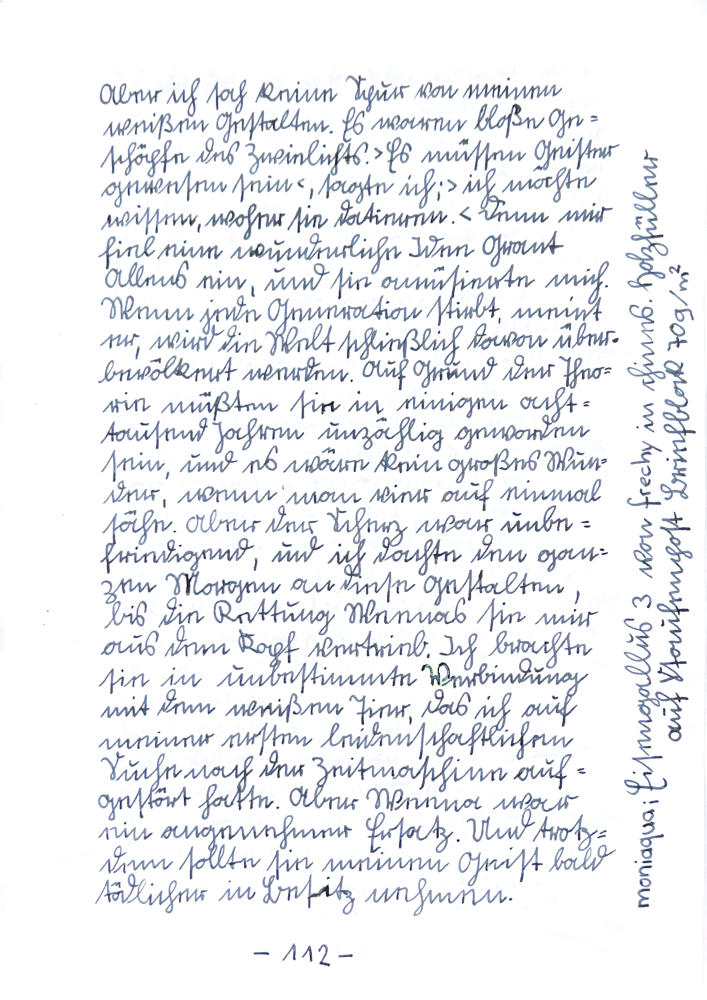 Aber ich sah keine Spur von meinen
weißen Gestalten. Es waren bloße Ge=
schöpfe des Zwielichts. >Es müssen Geister
gewesen sein<, sagte ich; >ich möchte
wissen, woher sie datieren.< Denn mir
fiel eine wunderliche Idee Grant
Allens ein, und sie amüsierte mich.
Wenn jede Generation stirbt, meint
er, wird die Welt schließlich davon über=
bevölkert werden. Auf Grund der Theo=
rie müßten sie in einigen acht=
tausend Jahren unzählig geworden
sein, und es wäre kein großes Wun=
der, wenn man vier auf einmal
sähe. Aber der Scherz war unbe=
friedigend, und ich dachte den gan=
zen Morgen an diese Gestalten,
bis die Rettung Weenas sie mir
aus dem Kopf vertrieb. Ich brachte
sie in unbestimmte Verbindung
mit dem weißen Tier, das ich auf
meiner ersten leidenschaftlichen
Suche nach der Zeitmaschine auf=
gestört hatte. Aber Weena war
ein angenehmer Ersatz. Und trotz=
dem sollte sie meinen Geist bald
tödlicher in Besitz nehmen.
- 112 -
moniaqua: Eisengallus 3 von frechy in chines. Holzfüller
auf Staufenhof Briefblock 70g/m²